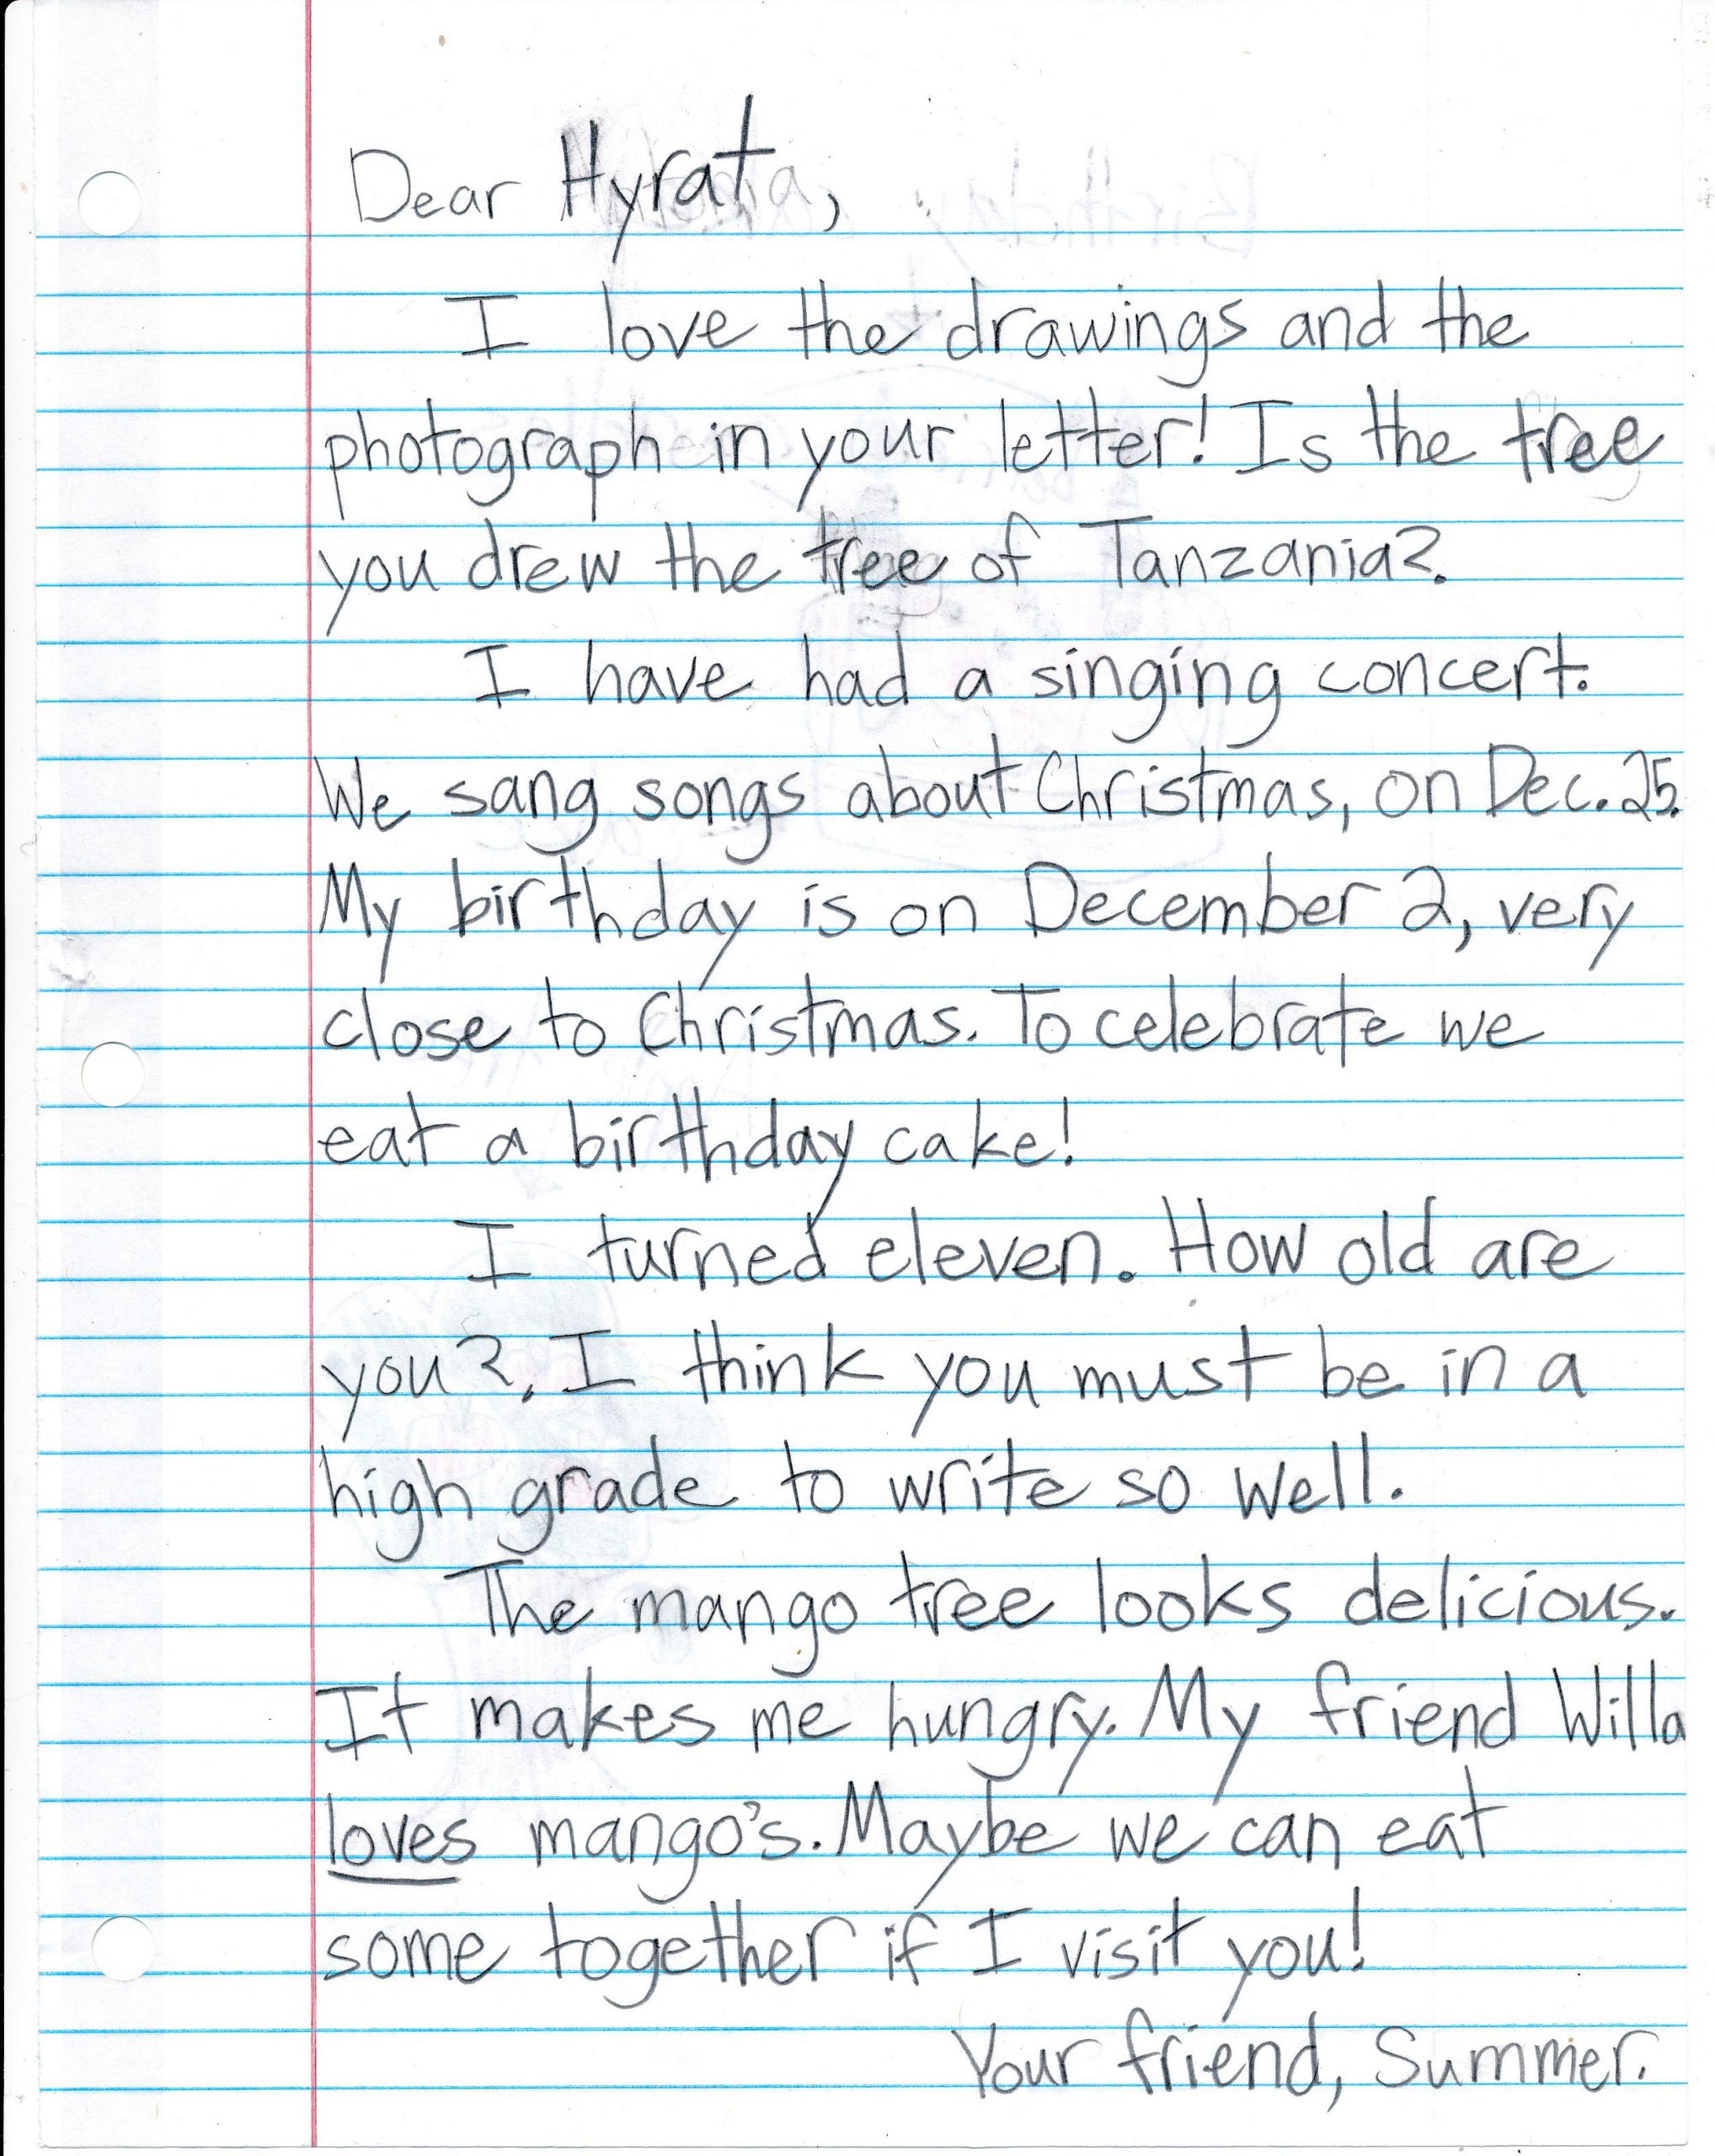 Dear Hyrat,
I love the drawings and the
photograph in your letter! Is the tree
you drew the tree of Tanzania?.
I have had a singing concert.
We sang songs about Christmas, on Dec. 25.
My birthday is on December 2, very
close to Christmas. To celebrate we
eat a birthday cake!
I turned eleven. How old are
you?. I think you must be in a
high grade to write so well.
The mango tree looks delicious.
It makes me hungry. My friend Willa
loves mango's. Maybe we can eat
some together if I visit you!
Your friend, Summer.